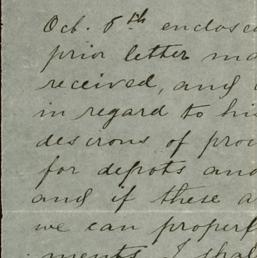 Oct. 6th enclose
prior letter ma
received, and
in regard to his
desirous of proc
for depots and
and if these a
we can properl
ments, I shal